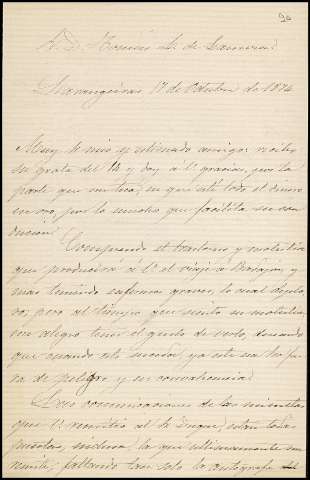 A. D. Ramón L. de
17 de Octubre de 1874
Muy Sr mio y estimado amigo: recibo
su grata del 14 y doy á V. gracias, por la
parte que me toca, en que esté todo el dinero
en oro, por lo mucho que facilita su con
duccion.
Comprendo el trastorno y molestia
que producirá á V. el viaje á
mas teniendo enfermo grave, lo cual deplo
ro; pero al tiempo que siento su molestia,
me alegro tener el gusto de verlo, deseando
que cuando esto suceda, ya esté su
ra de peligro y en convalecencia.
Las comunicaciones de los
que V. remitió al Sr Duque, están todas
puestas, inclusa la que ultimamente me
remite, faltando tan solo la autógrafa del